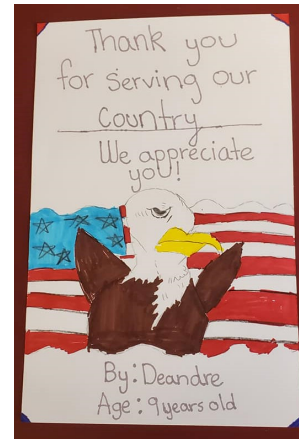 Thank you
for serving our
country
We appreciate
you!
By: Deandre
Age: 9 years old